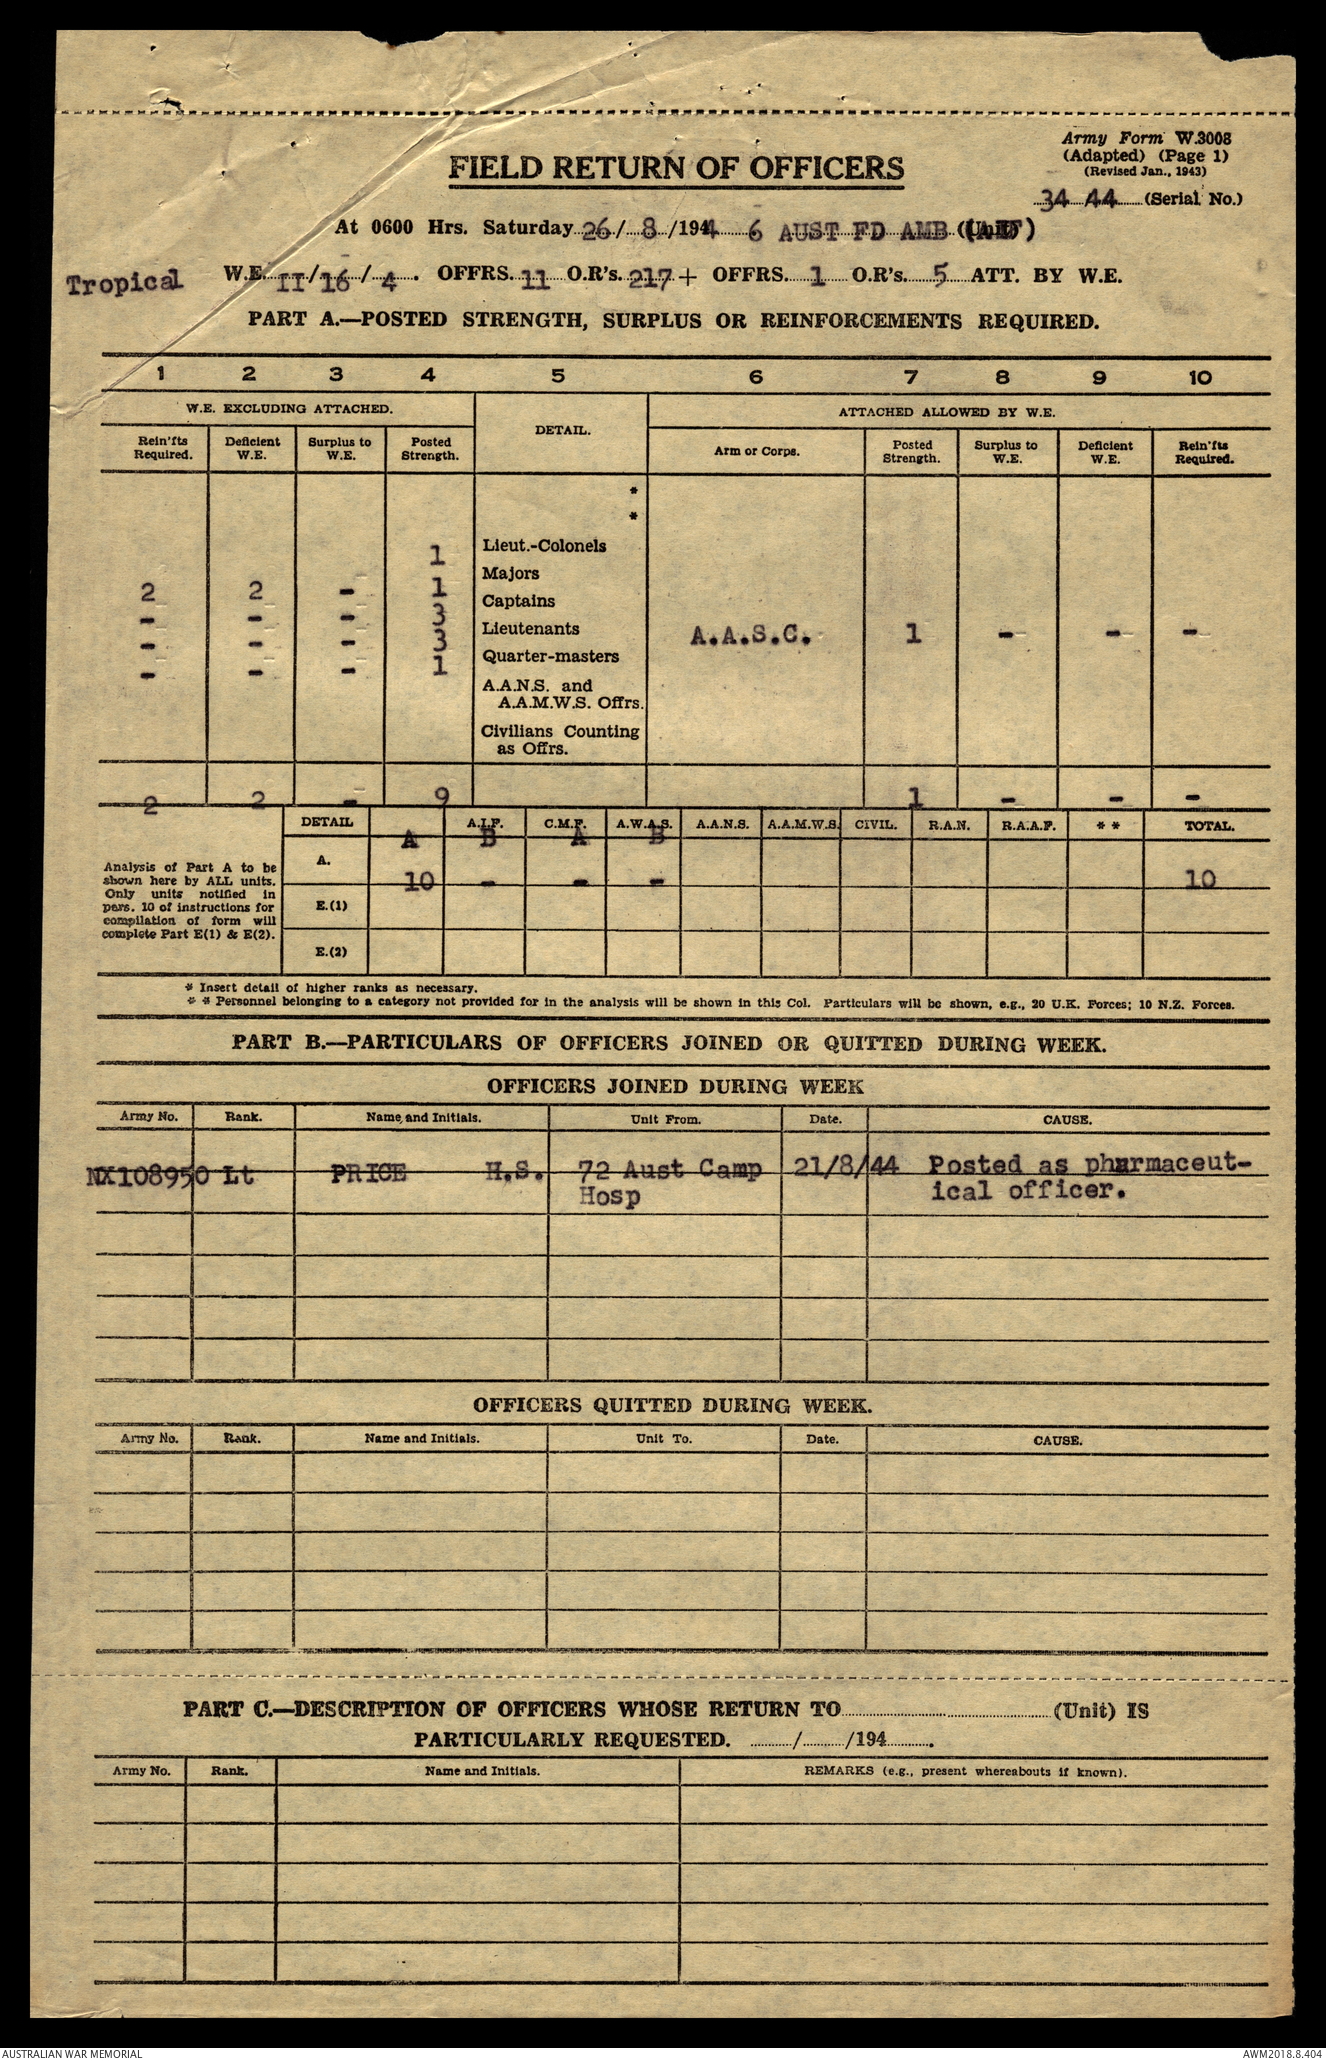 Army Form W.3008
(Adapted) (Page 1)
(Revised Jan., 1943)
FIELD RETURN OF OFFICERS
34 44 (Serial No.)
At 0600 Hrs. Saturday 26/ 8 /1944 6 AUST FD AMB (AIF)
Tropical W.E. II/16/4. OFFRS. 11 O.R's. 217 + OFFRS. 1 O.R's. 5 ATT. BY W.E.
PART A.—POSTED STRENGTH, SURPLUS OR REINFORCEMENTS REQUIRED.
1 2 3 4 5 6 7 8 9 10
W.E. EXCLUDING ATTACHED. DETAIL. ATTACHED ALLOWED BY W.E.
Rein'fts Required. Deficient W.E. Surplus to W.E. Posted Strength. Arm or Corps. Posted Strength. Surplus to W.E. Deficient W.E. Rein'fts Required.
*
*
1 Lieut.-Colonels
2 2 - 1 Majors
- - - 3 Captains
- - - 3 Lieutenants A.A.S.C. 1 - - -
- - - 1 Quarter-masters
A.A.N.S. and
A.A.M.W.S. Offrs.
Civilians Counting
as Offrs.
2 2 - 9 1 - - -
DETAIL A.I.F. C.M.F. A.W.A.S. A.A.N.S. A.A.M.W.S. CIVIL. R.A.N. R.A.A.F. * * TOTAL.
A B A B
A.
10 - - - 10
Analysis of Part A to be
shown here by ALL units.
Only units notified in
para. 10 of instructions for
compilation of form will
complete Part E(1) & E(2).
E.(1)
E.(2)
* Insert detail of higher ranks as necessary.
* * Personnel belonging to a category not provided for in the analysis will be shown in this Col. Particulars will be shown, e.g., 20 U.K. Forces; 10 N.Z. Forces.
PART B.—PARTICULARS OF OFFICERS JOINED OR QUITTED DURING WEEK.
OFFICERS JOINED DURING WEEK
Army No. Rank. Name and Initials. Unit From. Date. CAUSE.
NX108950 Lt PRICE H.S. 72 Aust Camp 21/8/44 Posted as pharmaceut-
Hosp ical officer.
OFFICERS QUITTED DURING WEEK.
Army No. Rank. Name and Initials. Unit To. Date. CAUSE.
PART C.—DESCRIPTION OF OFFICERS WHOSE RETURN TO (Unit) IS
PARTICULARLY REQUESTED. / /194 .
Army No. Rank. Name and Initials. REMARKS (e.g., present whereabouts if known).
AUSTRALIAN WAR MEMORIAL AWM2018.8.404